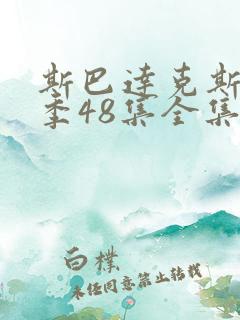 斯巴达克斯
季48集全集
白朴
未经同意禁止转载